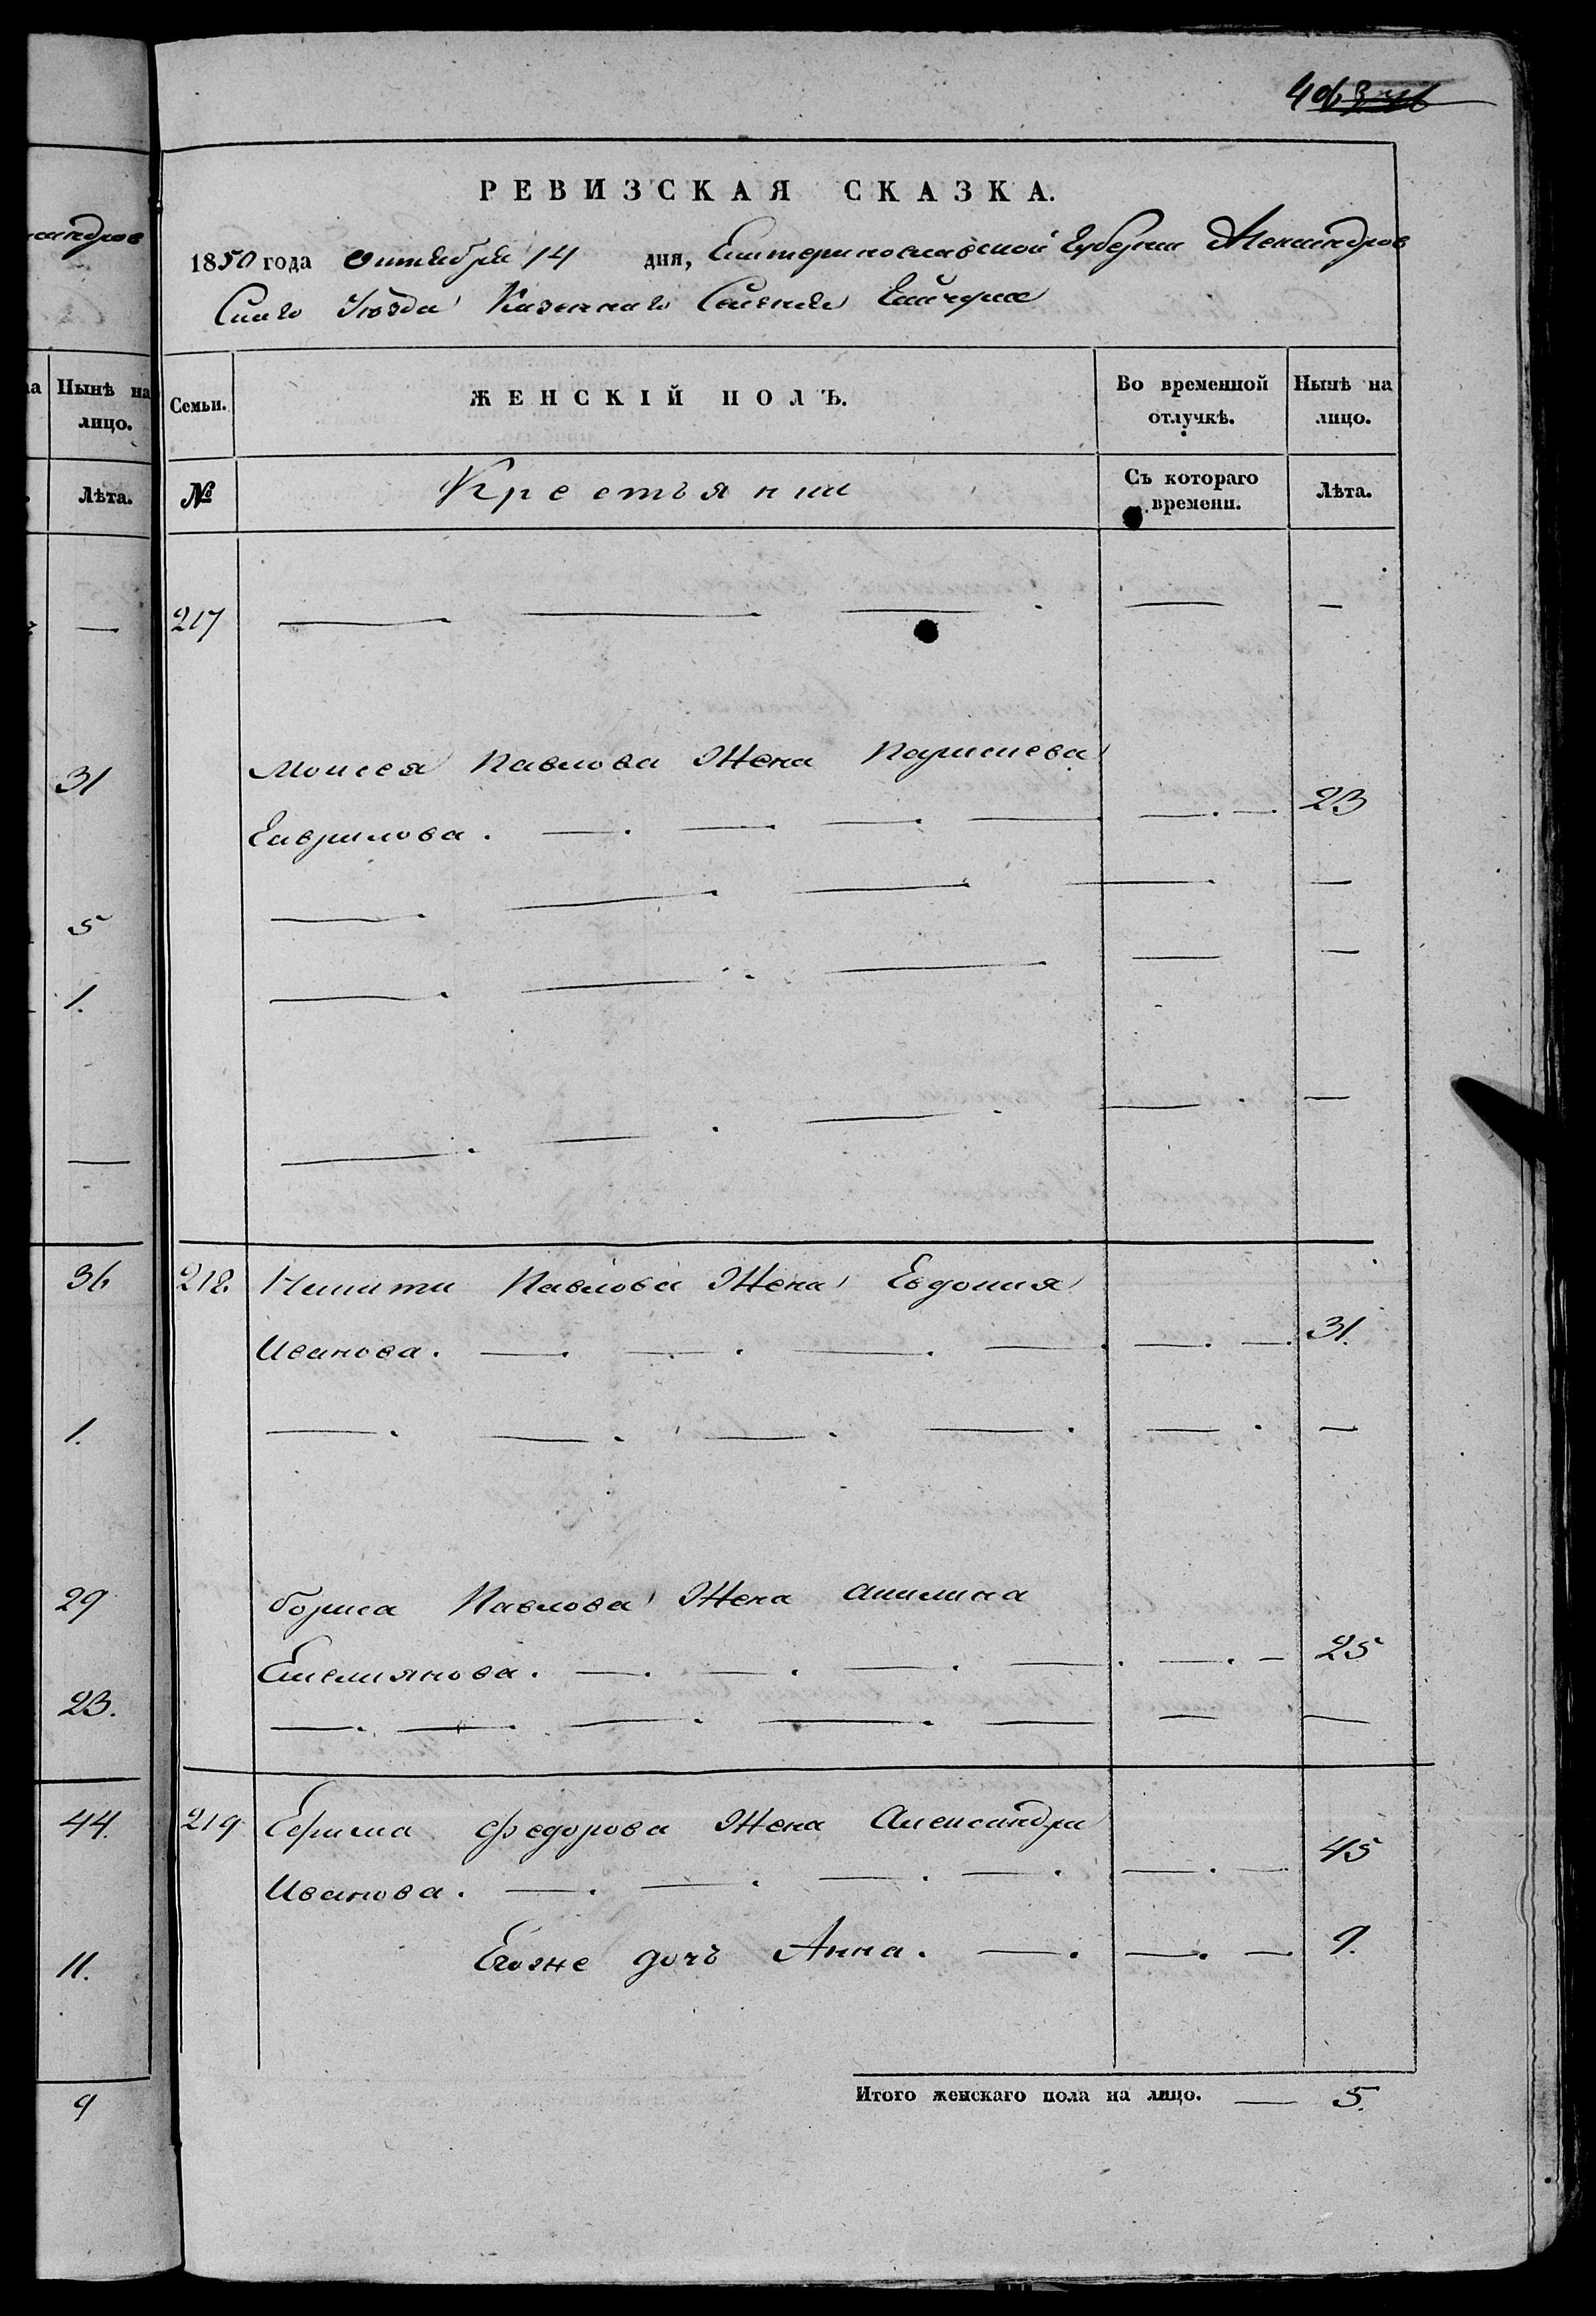 406
РЕВИЗСКАЯ СКАЗКА.
1850 года октября 14 дня, Екатеринославской Губернии Александров
скаго Уезда Казеннаго Селения Гайчура
Семьи.
ЖЕНСКІЙ ПОЛЪ.
Во временной отлучкѣ.
Нынѣ на лицо.
№
Крестьянки
Съ котораго времени.
Лѣта.
217 — — — — —
Моисея Павлова Жена Параскева
Гаврилова. — — — — — — 23
— — — — —
— — — — —
— — — — —
218. Никити Павлова Жена Евдокия
Иванова. — — — — — — 31.
— — — — — —
бориса Павлова Жена акилина
Емелиянова. — — — — — — 25
— — — — — — —
219 Ефима Федорова Жена Александра
Иванова. — — — — — — 45
Егоже дочъ Анна. — — — 9.
Итого женскаго пола на лицо. — 5.
сандров
на
Нынѣ на лицо.
Лѣта.
—
31
5
1.
—
36
1.
29
23.
44.
11.
9